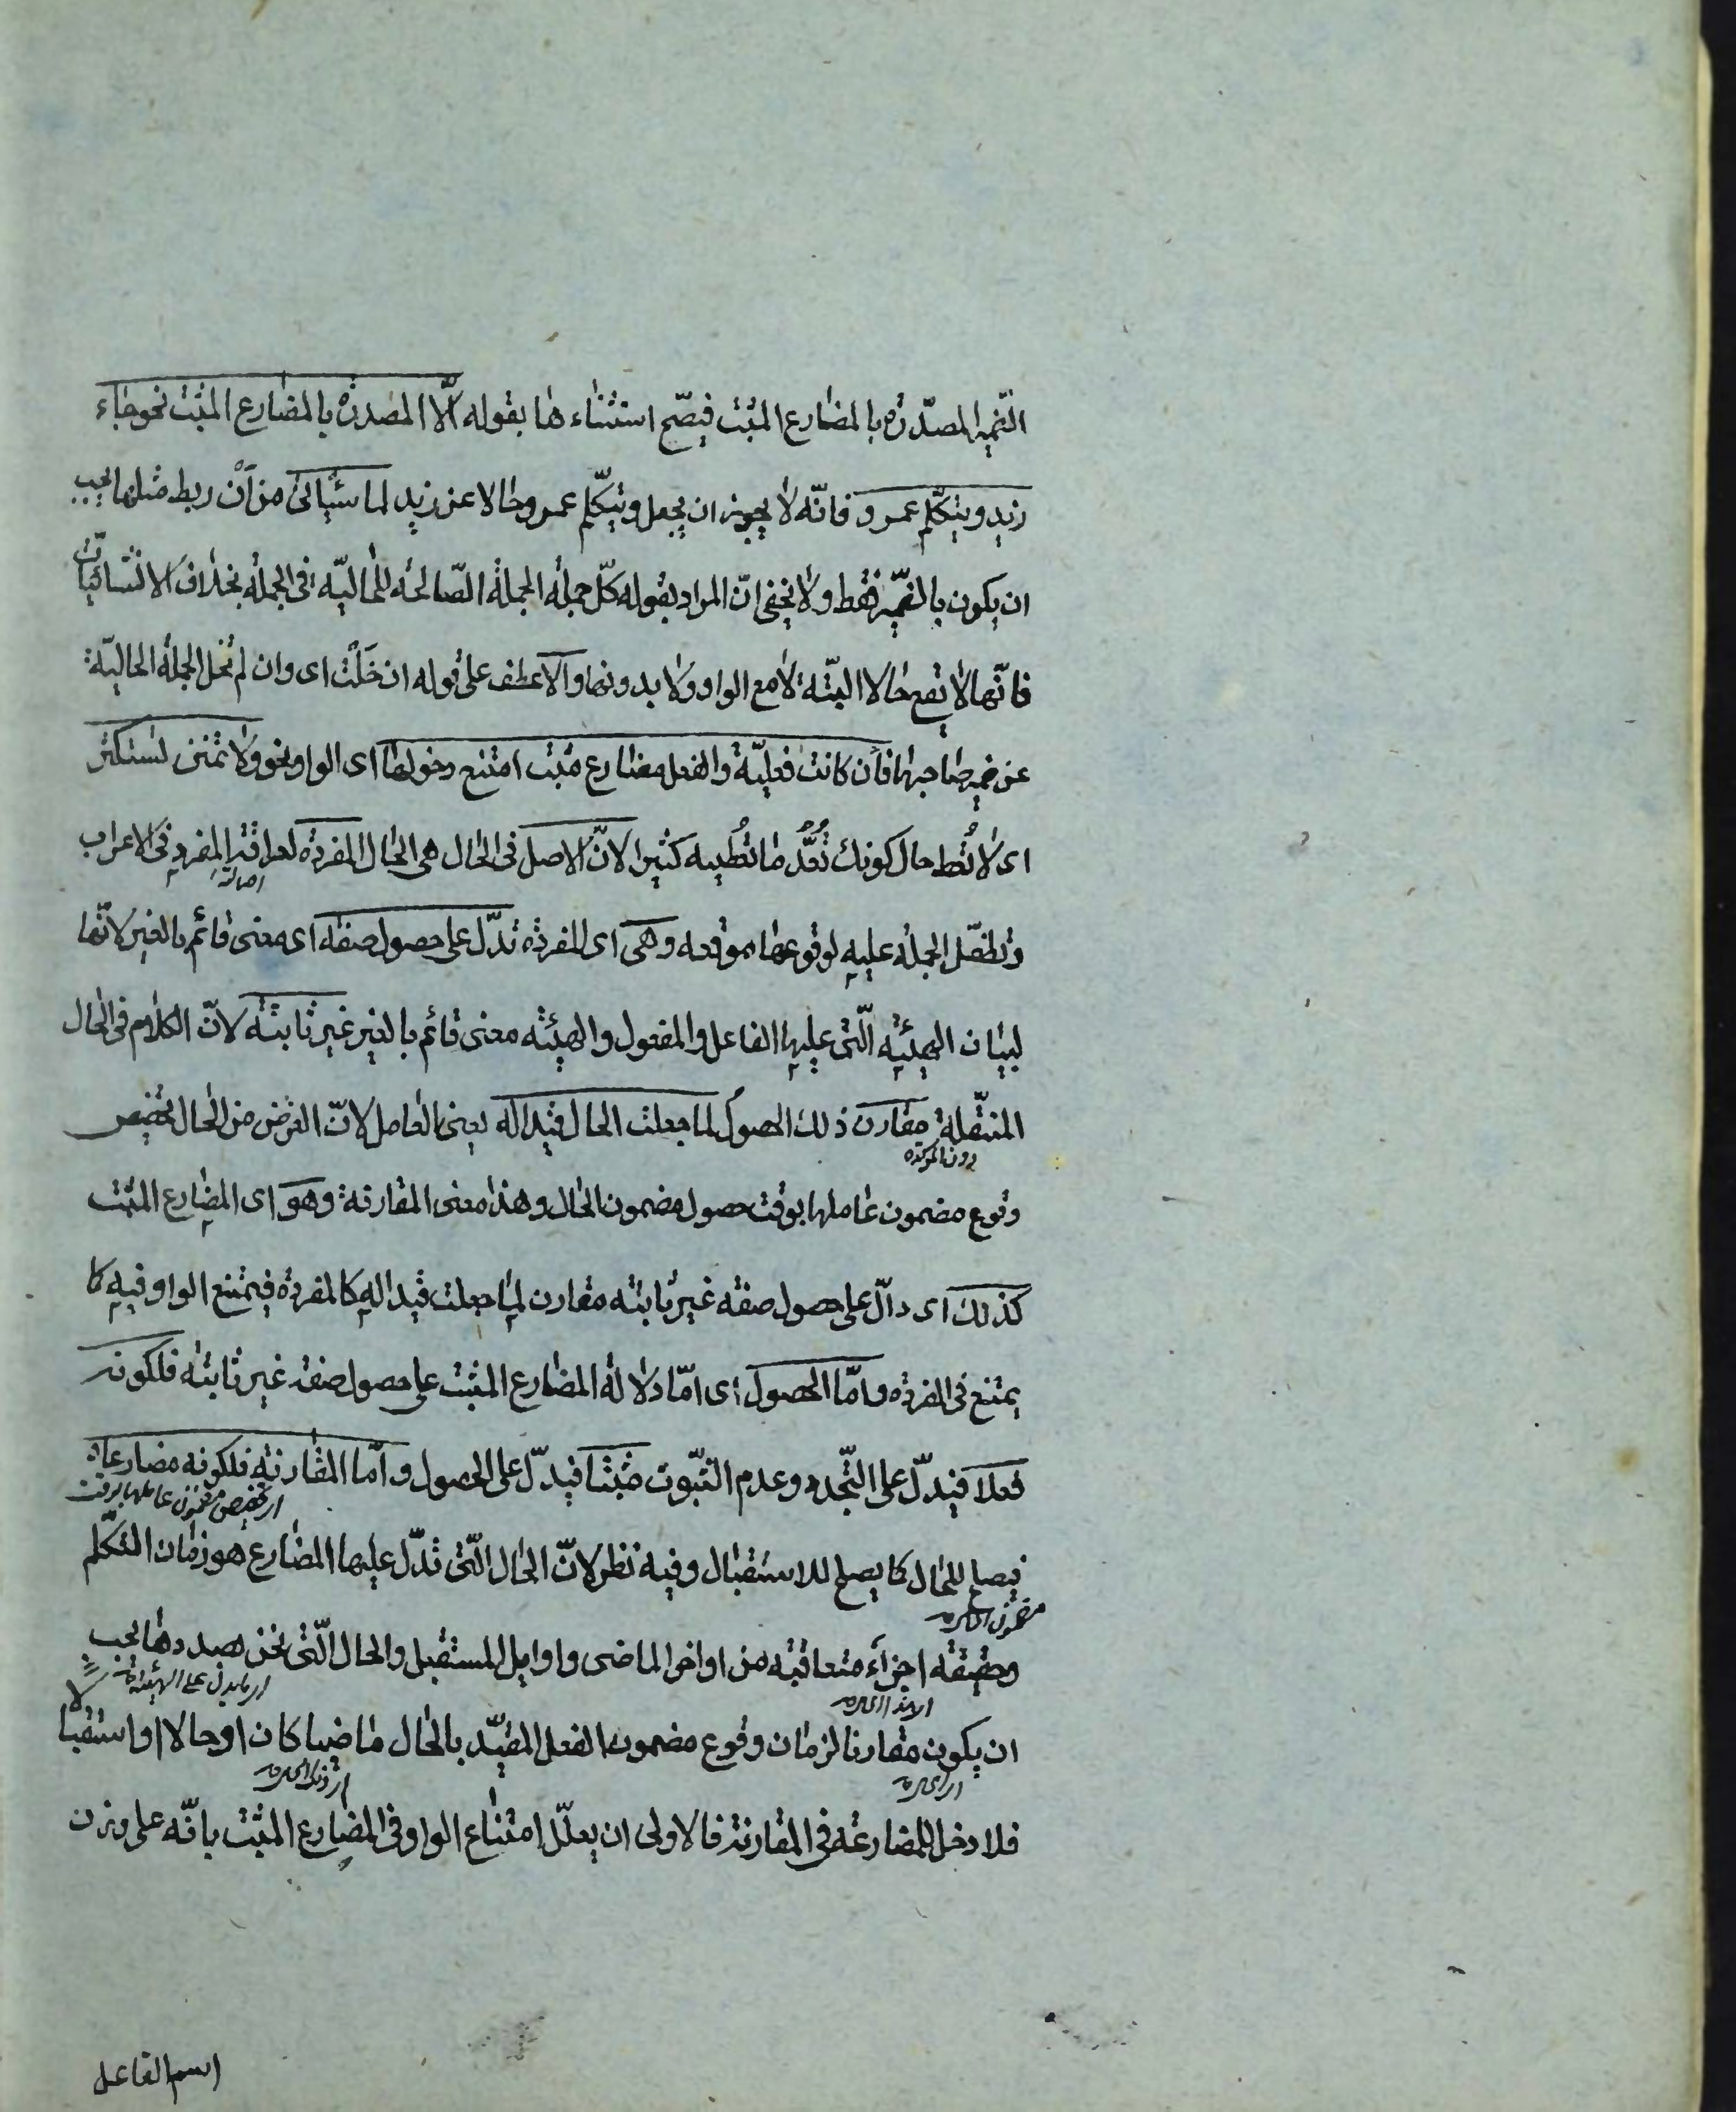 الضمير المصدّرة بالمضارع المثبت فيصحّ استثناءها بقوله الّا المصدرة بالمضارع المثبت نحو جاء
زيد ويتكلّم عمرو فانّه لا يجوز ان يجعل ويتكلّم عمرو حالا عن زيد لما سيأتى من أنّ ربط مثلها يجب
ان يكون بالضمير فقط ولا يخفى انّ المراد بقوله كلّ جملة الجملة الصّالحة للحاليّة فى الجملة بخلاف الانشائيّات
فانّها لا تقع حالا البتّة لا مع الواو ولا بدونها والّا عطف على قوله ان خلت اى وان لم تخل الجملة الحاليّة
عن ضمير صاحبها فان كانت فعليّة والفعل مضارع مثبت امتنع دخولها اى الواو نحو ولا تمنن تستكثر
اى لا تُعط حال كونك تَعُدُّ ما تُعطيه كثيرا لانّ الاصل فى الحال هى الحال المفردة لعراقة المفرد فى الاعراب
اصالة
وتطفّل الجملة عليه لوقوعها موقعه وهى اى المفردة تدلّ على حصول صفة اى معنى قائم بالغير لانّها
لبيان الهيئة الّتى عليها الفاعل والمفعول والهيئة معنى قائم بالغير غير ثابتة لانّ الكلام فى الحال
المنتقلة مقارن ذلك الحصول لما جعلت الحال قيدا له يعنى العامل لانّ الغرض من الحال تخصيص
دون المؤكدة
وقوع مضمون عاملها بوقت حصول مضمون الحال وهذا معنى المقارنة وهو اى المضارع المثبت
كذلك اى دالّ على حصول صفة غير ثابتة مقارن لما جعلت قيدا له كالمفردة فيمتنع الواو فيه كما
يمتنع فى المفردة وامّا الحصول اى امّا دلالة المضارع المثبت على حصول صفة غير ثابتة فلكونه
فعلا فيدلّ على التّجدد وعدم الثّبوت مثبتا فيدلّ على الحصول وامّا المقارنة فلكونه مضارعا
تخصيص مضمون عاملها بوقت
فيصلح للحال كما يصلح للاستقبال وفيه نظر لانّ الحال الّتى تدلّ عليها المضارع هو زمان التكلّم
مضمون الحال
وحقيقته اجزاء متعاقبة من اواخر الماضى واوايل المستقبل والحال الّتى نحن بصددها يجب
ما يدل على الهيئة
ان يكون مقارنا لزمان وقوع مضمون الفعل المقيّد بالحال ماضيا كان او حالا او استقبالا
فلا دخل للمضارعة فى المقارنة فالاولى ان يعلّل امتناع الواو فى المضارع المثبت بانّه على وزن
اسم الفاعل